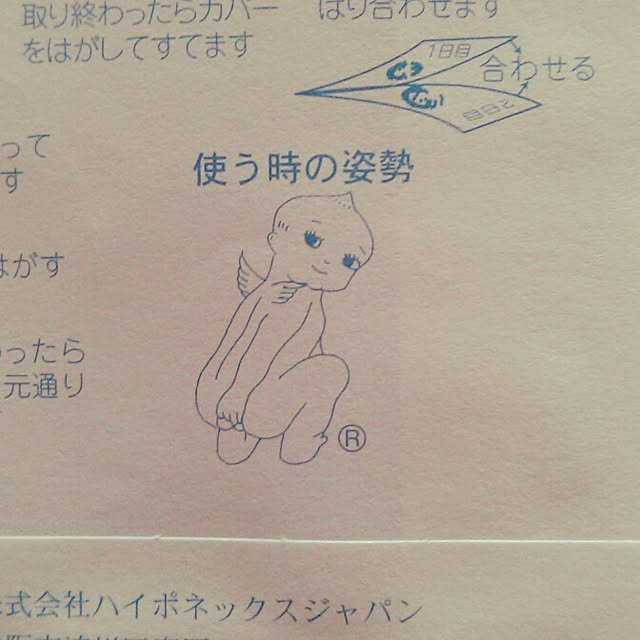 取り終わったらカバー
をはがしてすてます
はり合わせます
1日目
合わせる
2日目
って
す
使う時の姿勢
はがす
ったら
元通り
®
式会社ハイポネックスジャパン